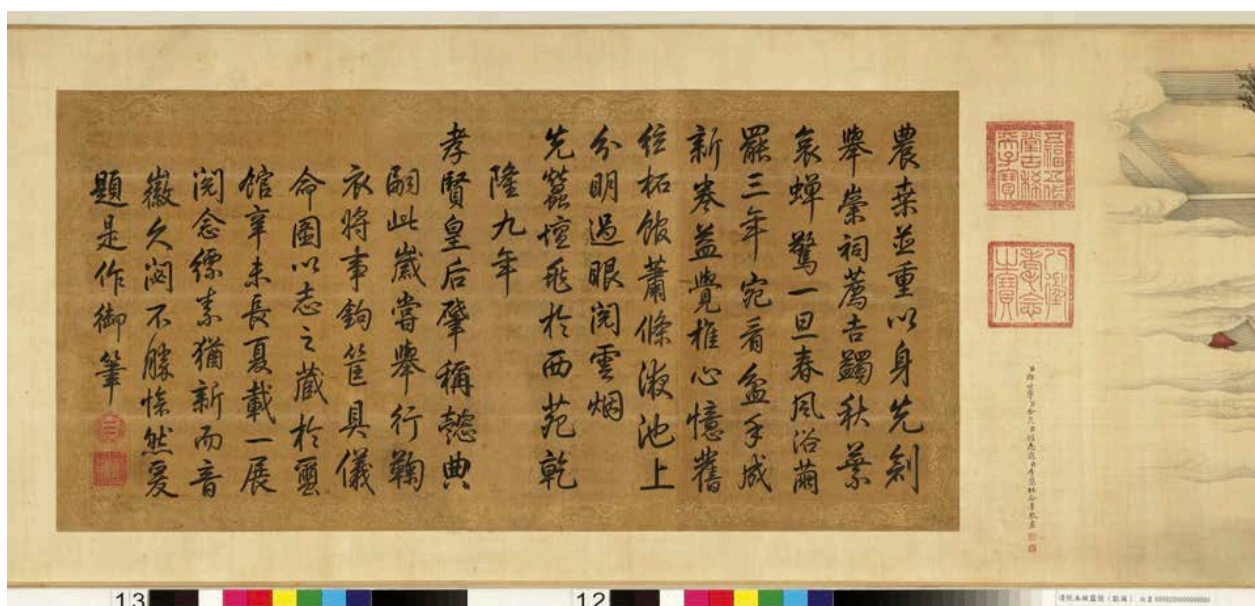 農桑並重以身先剏
舉崇祠薦吉蠲秋葉
哀蟬驚一旦春風浴繭
罷三年宛看盆手成
新卷益覺椎心憶舊
緣柘館蕭條液池上
分明過眼閱雲烟
先蠶壇飛於西苑乾
隆九年
孝賢皇后肇稱懿典
嗣此歲嘗舉行鞠
衣將事鉤筐具儀
命圖以志之藏於蠶
館辛未長夏載一展
閱念縹素猶新而音
徽久閟不勝愴然爰
題是作御筆
五福五代堂古稀天子寶
八徵耄念之寶
13
12